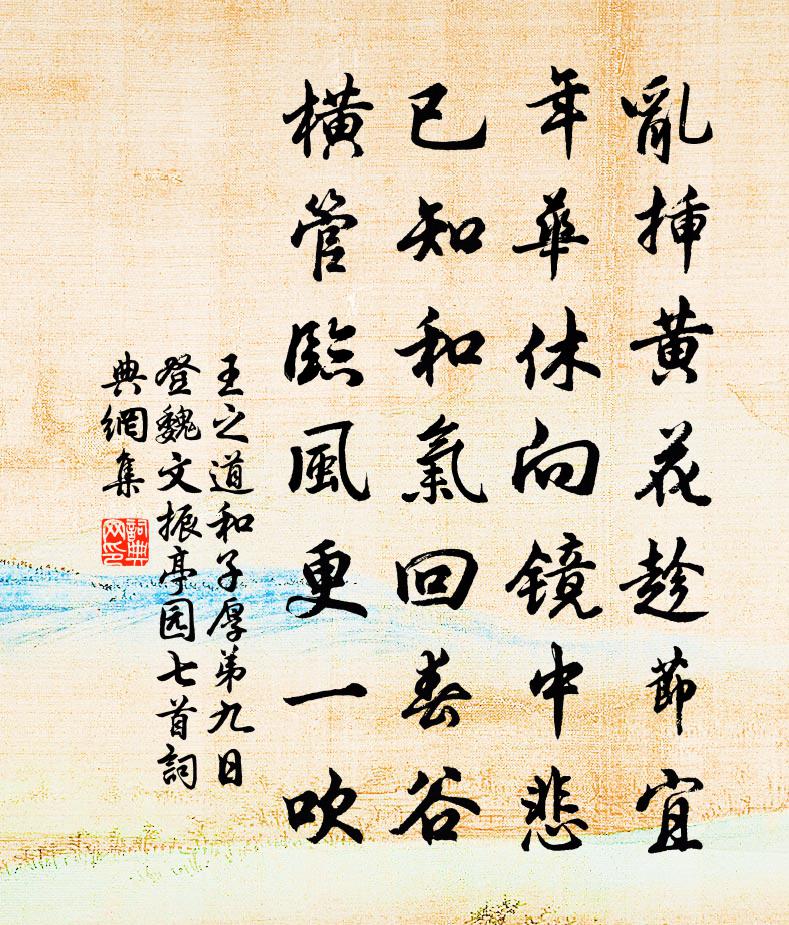 亂挿黄花趁節宜
年華休向镜中悲
已知和氣回春谷
横管臨風更一吹
王之道和子厚弟九日
登魏文振亭园七首詞
典網集
詞典网印